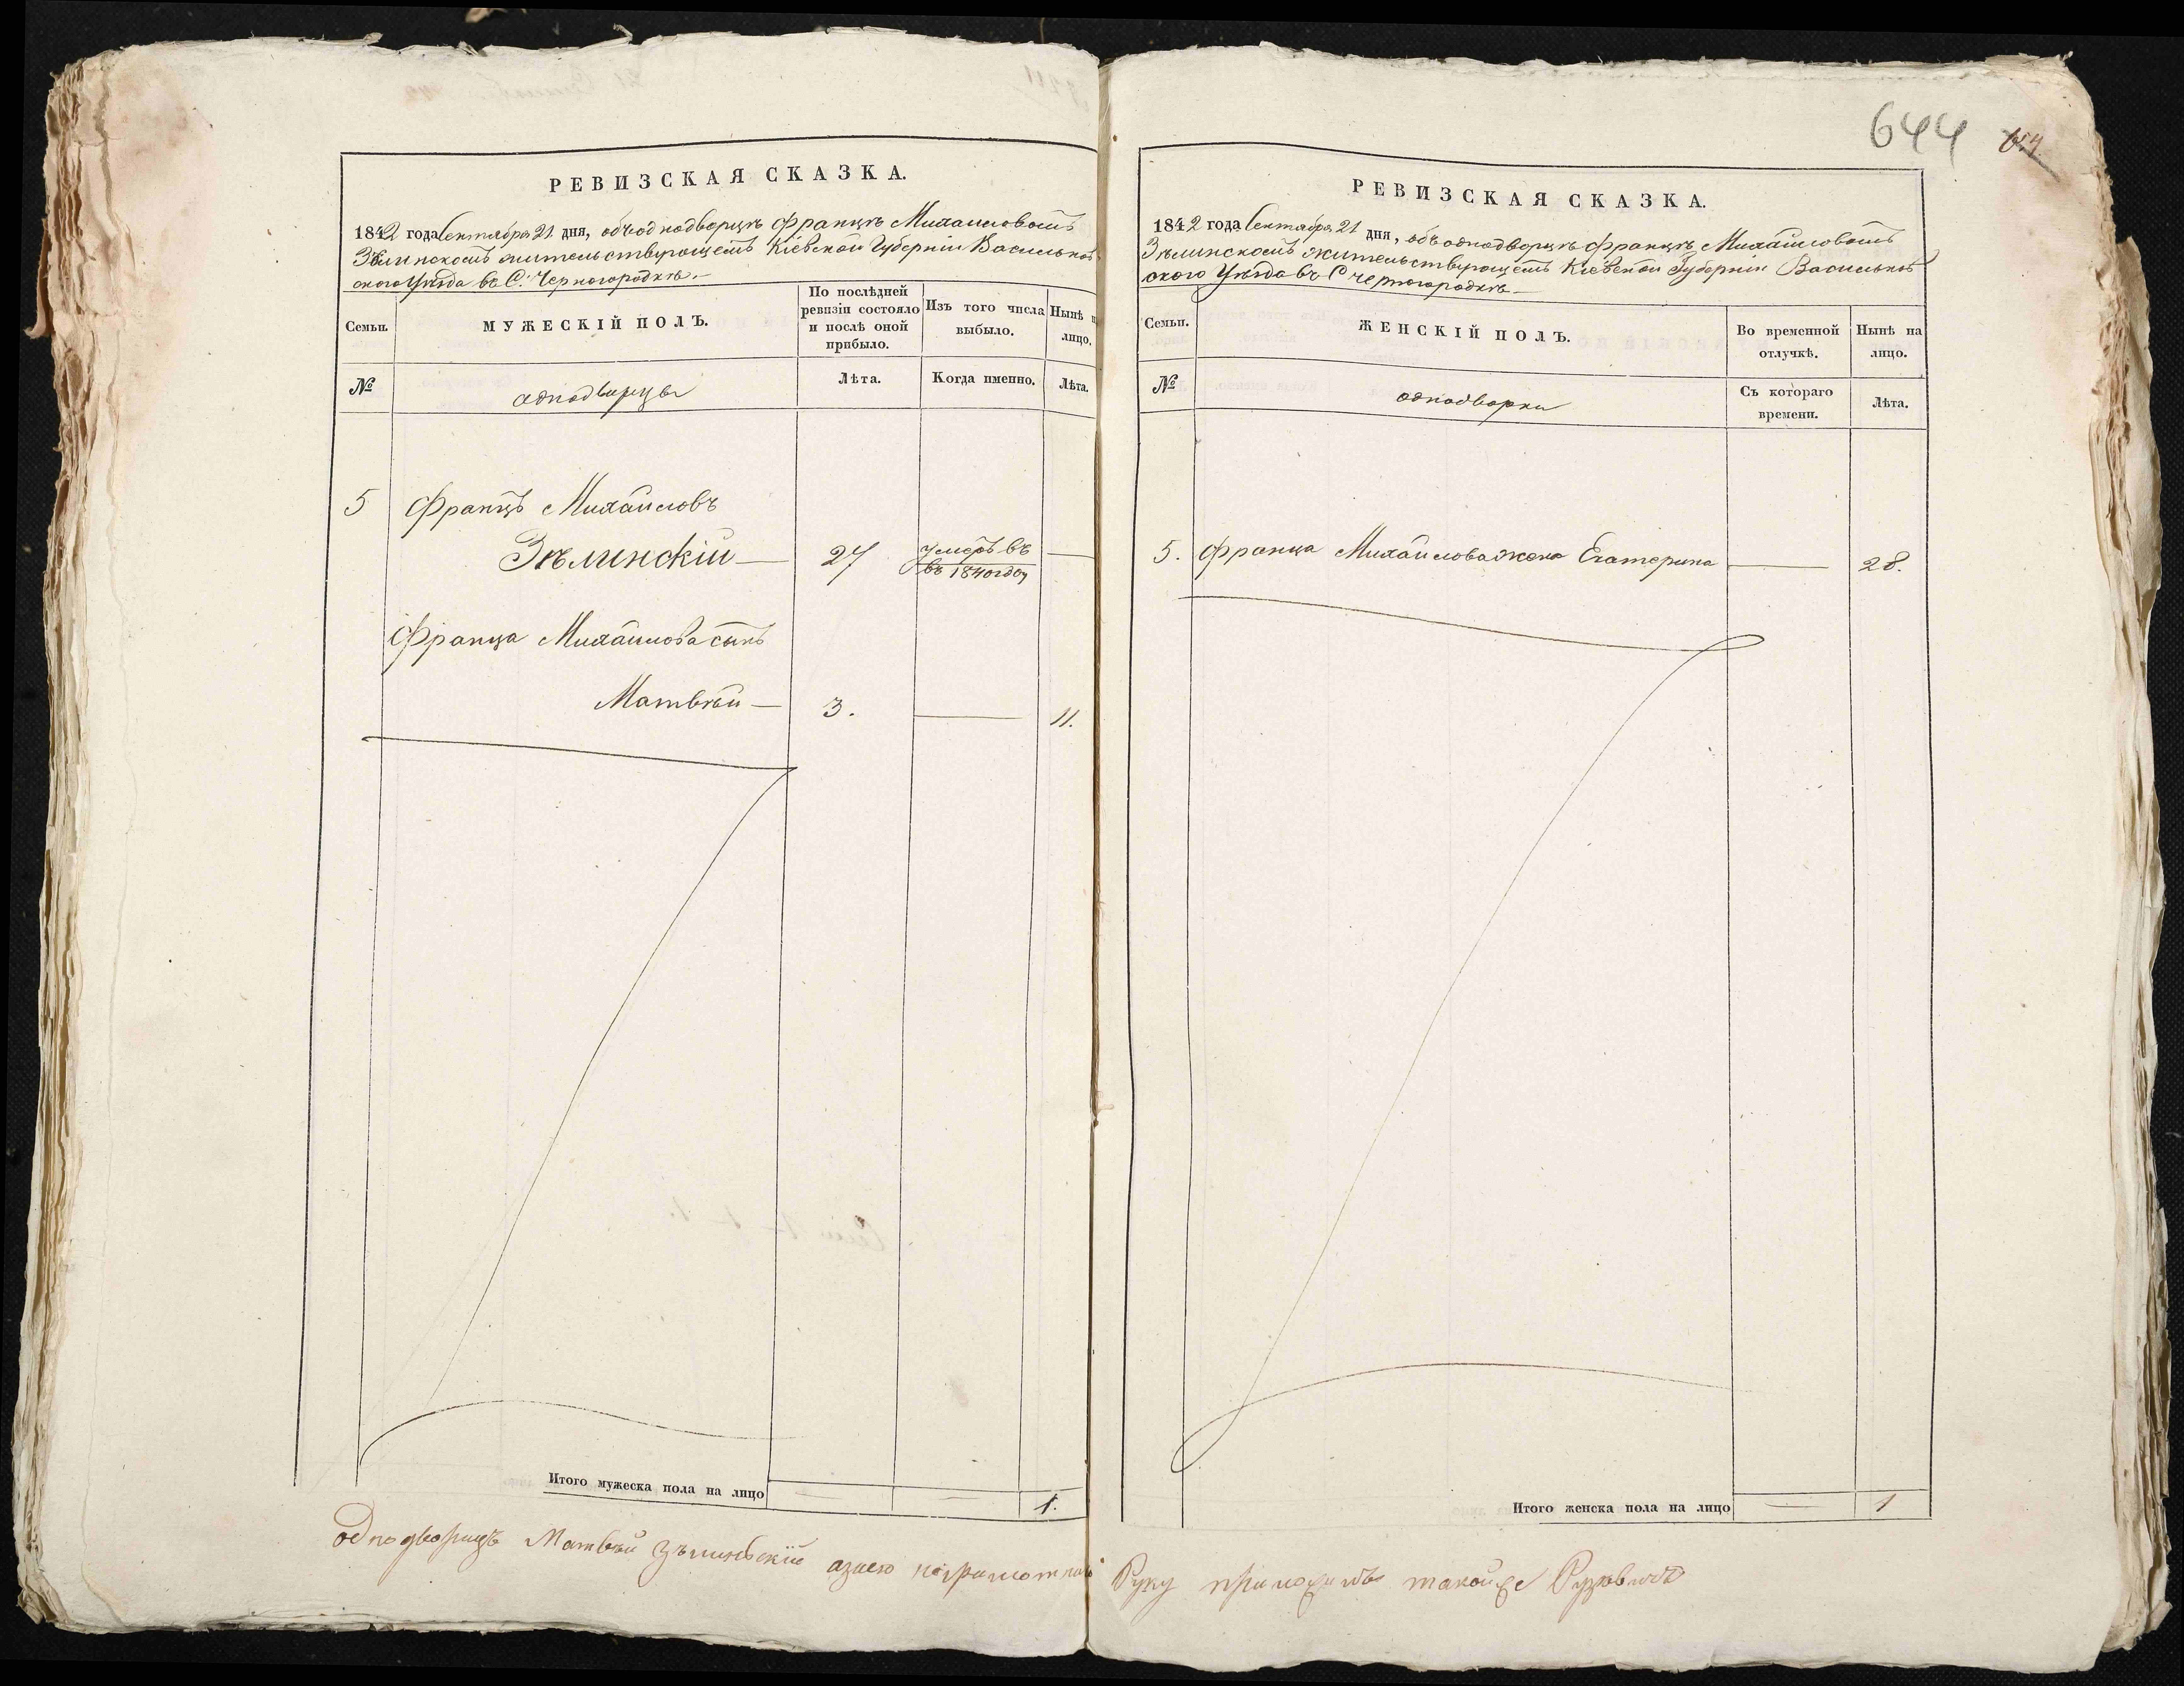 РЕВИЗСКАЯ СКАЗКА.
1842 года Сентября 21 дня, объ однодворцѣ Францѣ Михайловомъ
Зѣлинскомъ жительствующемъ Кіевской Губерніи Васильков
скаго Уѣзда въ С. Черногородкѣ.—
Семьи.
МУЖЕСКІЙ ПОЛЪ.
По послѣдней
ревизіи состояло
и послѣ оной
прибыло.
Изъ того числа
выбыло.
Нынѣ н
лицо.
№
однодворцы
Лѣта.
Когда именно.
Лѣта.
5 Францъ Михайловъ
Зѣлинскій — 27 умеръ въ —
въ 1840 году
Франца Михайлова сынъ
Матвѣй — 3. — 11.
Итого мужеска пола на лицо — — 1.
однодворецъ Матвѣй Зѣлинскій
644
РЕВИЗСКАЯ СКАЗКА.
1842 года Сентября 21 дня, объ однодворцѣ Францѣ Михайловомъ
Зѣлинскомъ жительствующемъ Кіевской Губерніи Васильков
скаго Уѣзда въ С Черногородкѣ —
Семьи.
ЖЕНСКІЙ ПОЛЪ.
Во временной
отлучкѣ.
Нынѣ на
лицо.
№
однодворки
Съ котораго
времени.
Лѣта.
5. Франца Михайлова жена Екатерина — 28.
Итого женска пола на лицо — 1
Руку приложилъ такойже